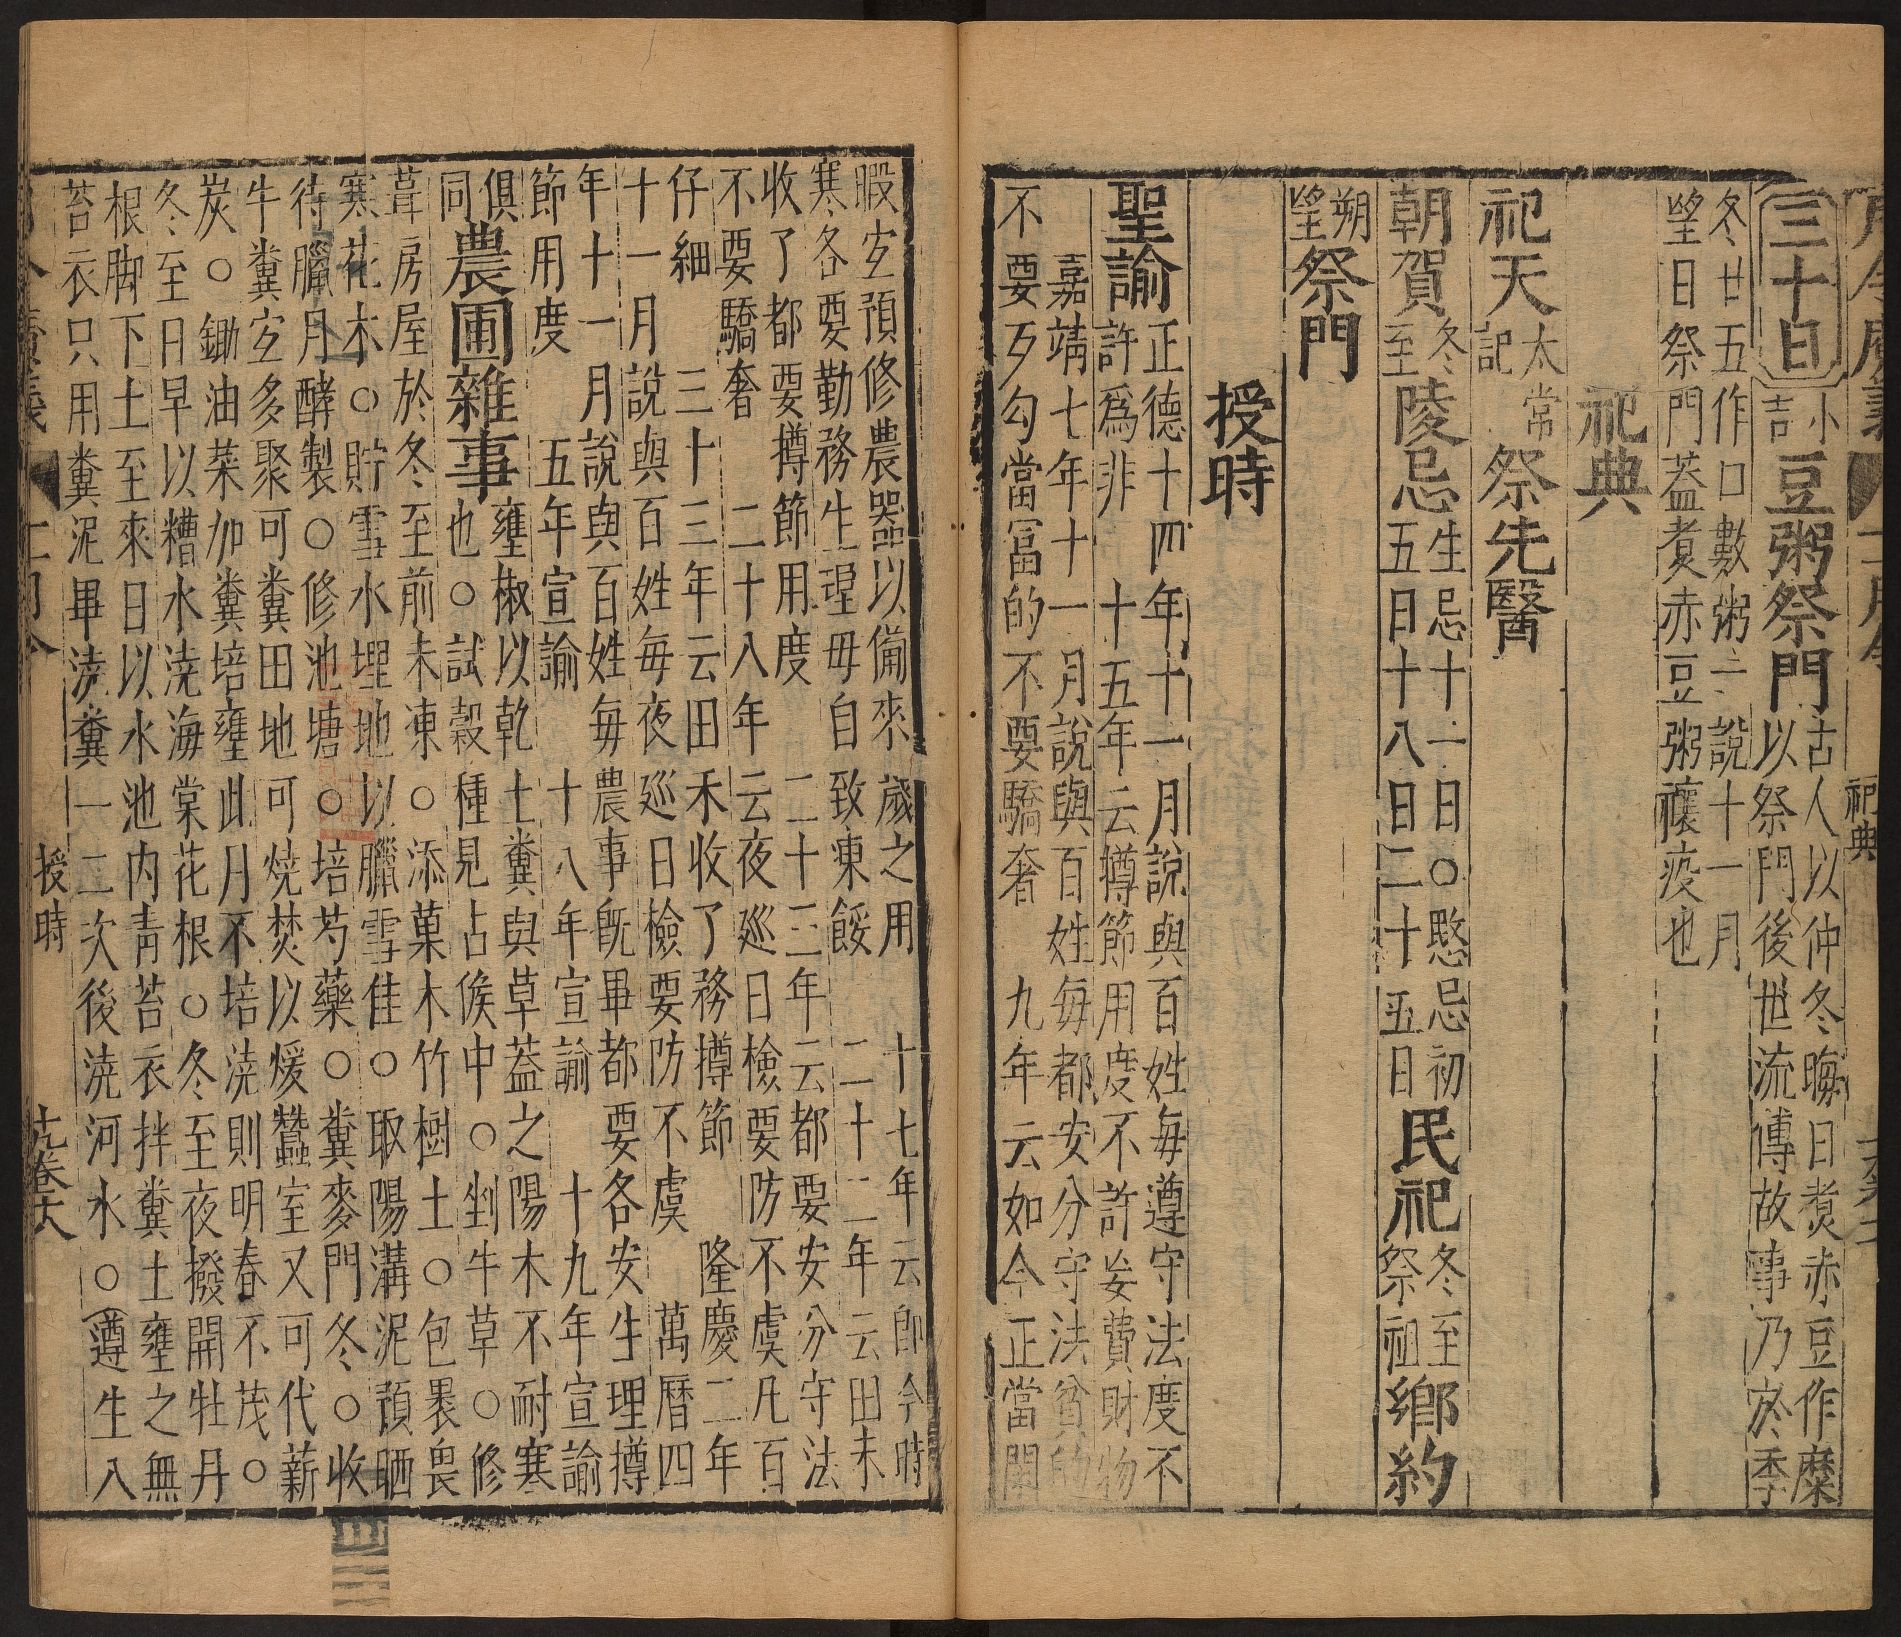 三十日 小吉 豆粥祭門 古人以仲冬晦日煑赤豆作糜
以祭門後世流傳故事乃於季
冬廿五作口數粥一說十一月
望日祭門葢煑赤豆粥禳疫也
祀典
祀天 太常記 祭先醫
朝賀 冬至 陵忌 生忌十一日○愍忌初五日十八日二十五日 民祀 冬至祭祖 鄉約
朔望 祭門
授時
聖諭 正德十四年十一月說與百姓每遵守法度不
許爲非 十五年云撙節用度不許妄費財物
嘉靖七年十一月說與百姓每都安分守法貧的
不要歹勾當冨的不要驕奢 九年云如今正當閑
暇宜預修農器以備來歲之用 十七年云卽今時
寒各要勤務生理毋自致凍餒 二十二年云田未
收了都要撙節用度 二十三年云都要安分守法
不要驕奢 二十八年云夜巡日檢要防不虞凡百
仔細 三十三年云田禾收了務撙節 隆慶二年
十一月說與百姓每夜巡日檢要防不虞 萬曆四
年十一月說與百姓每農事旣畢都要各安生理撙
節用度 五年宣諭 十八年宣諭 十九年宣諭
俱同 農圃雜事 壅椒以乾土糞與草葢之陽木不耐寒
也○試穀種見占候中○剉牛草○修
葺房屋於冬至前未凍○添菓木竹樹土○包裹畏
寒花木○貯雪水埋地以臘雪佳○取陽溝泥預晒
待臘月酵製○修池塘○培芍藥○糞麥門冬○收
牛糞宜多聚可糞田地可燒焚以煖蠶室又可代薪
炭○鋤油菜加糞培壅此月不培澆則明春不茂○
冬至日早以糟水澆海棠花根○冬至夜撥開牡丹
根脚下土至來日以水池内靑苔衣拌糞土壅之無
苔衣只用糞泥畢澆糞一二次後澆河水○(遵生八
授時
祀典